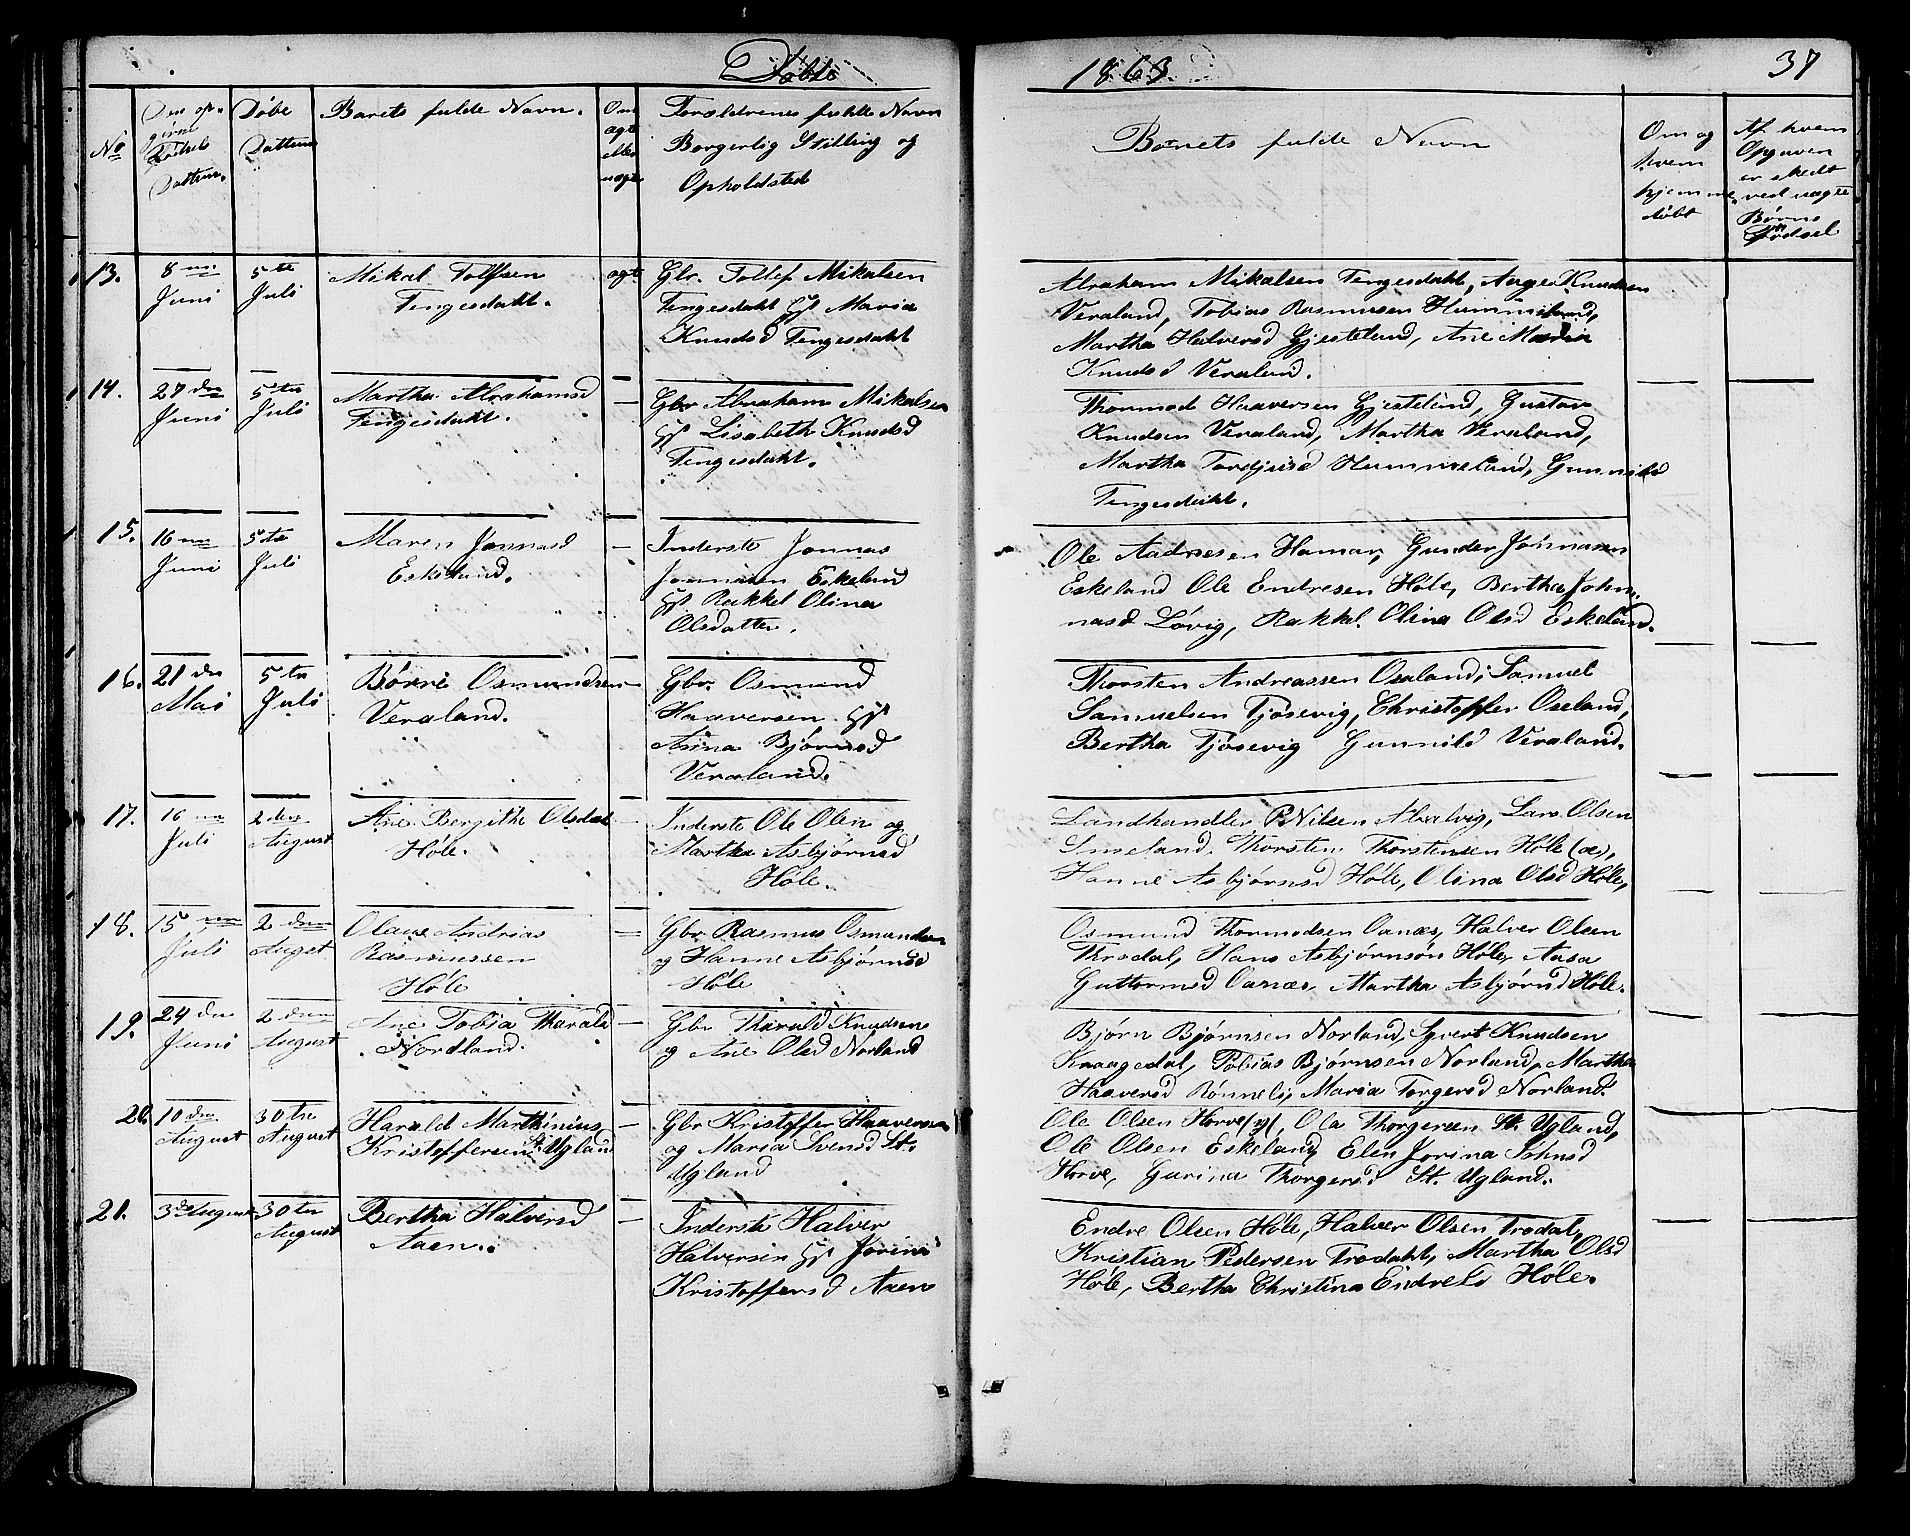 Døbte
1863.
37
No
Den op-
givne
Fødsels
Dattum.
Døbe
Dattum
Barets fulde Navn.
Om
ægte
eller
uægt
Forældrenes fulde Navn
Borgerlig Stilling og
Opholdsted
Barnets fulde Navn
Om og
hvem
hjemme
døbt
Af hvem
Opgaven
er skedt
ved uægte
Børns
Fødsel
13.
8 de
Juni
5te
Juli
Mikal Tolfsen
Fengesdahl.
ægt
Gbr. Tollef Mikalsen
Fengesdahl Hst Maria
Knudsd Fengesdahl
Abraham Mikalsen Fengesdahl, Aage Knudsen
Veraland, Tobias Rasmussen Hummeland,
Martha Halversd Gjesteland, Ane Maria
Knudsd Veraland.
14.
27 de
Juni
5te
Juli
Martha Abrahamsd
Fengesdahl.
—
Gbr Abraham Mikalsen
Hst Lisabeth Knudsd
Fengesdahl.
Thormod Haaversen Gjesteland, Gustav
Knudsen Veraland, Martha Veraland,
Martha Tordjusd Hummeland, Gunnild
Fengesdahl.
15.
16 de
Juni
5te
Juli
Maren Jonnasd
Eskeland.
—
Inderste Jonnas
Jonnasen Eskeland
Hst Rakkel Olina
Olsdatter.
Ole Aadnesen Hamar, Gunder Jonnasen
Eskeland Ole Endresen Høle, Bertha John-
nasd Løvig, Rakkel Olina Olsd Eskeland.
16.
21 de
Mai
5te
Juli
Børre Osmundsen
Veraland.
—
Gbr. Osmund
Haaversen Hst
Anna Bjørnsd
Veraland.
Thorsten Andreassen Oseland, Samuel
Samuelsen Tjøsevig, Christoffer Oseland,
Bertha Tjøsevig Gunnild Veraland.
17.
16 de
Juli
2 den
August
Ane Bergithe Olsdat
Høle.
—
Inderste Ole Olsen og
Martha Asbjørnsd
Høle.
Landhandler P. Nilsen Ahalvig, Lars Olsen
Smeland. Thorsten Thorstensen Høle (æ),
Hanne Asbjørnsd Høle, Olina Olsd Høle,
18.
15 de
Juli
2 den
August
Olaus Andrias
Rasmussen
Høle
—
Gbr Rasmus Osmundsen
og Hanne Asbjørnsd
Høle
Osmund Thormodsen Oanæs, Halver Olsen
Throdal, Hans Asbjørnsøn Høle, Aasa
Guttormsd Oanæs Martha Asbjørnd Høle.
19.
24 de
Juni
2 den
August
Ane Tobia Tharald
Nordland.
—
Gbr Tharald Knudsen
og Ane Olsd Norland
Bjørn Bjørnsen Norland, Syvert Knudsen
Kaagedal, Tobias Bjørnsen Norland, Martha
Haaversd Rønneli, Maria Torgersd Norland.
20.
10 de
August
30te
August
Harald Marthinius
Kristoffersen St. Ugland
—
Gbr Kristoffer Haaversen
og Maria Svensd St.
Ugland
Ole Olsen Horve (y), Ola Thorgersen St. Ugland,
Ole Olsen Eskeland, Elen Jorina Johnsd
Horve, Gurina Thorgersd St. Ugland.
21.
3de August
30te
August
Bertha Halversd
Aaen.
—
Inderste Halver
Halversen Hst Jorina
Kristoffersd Aaen
Endre Olsen Høle, Halver Olsen Trodal,
Kristian Pedersen Trodahl, Martha Olsd
Høle, Bertha Christina Endresd Høle.